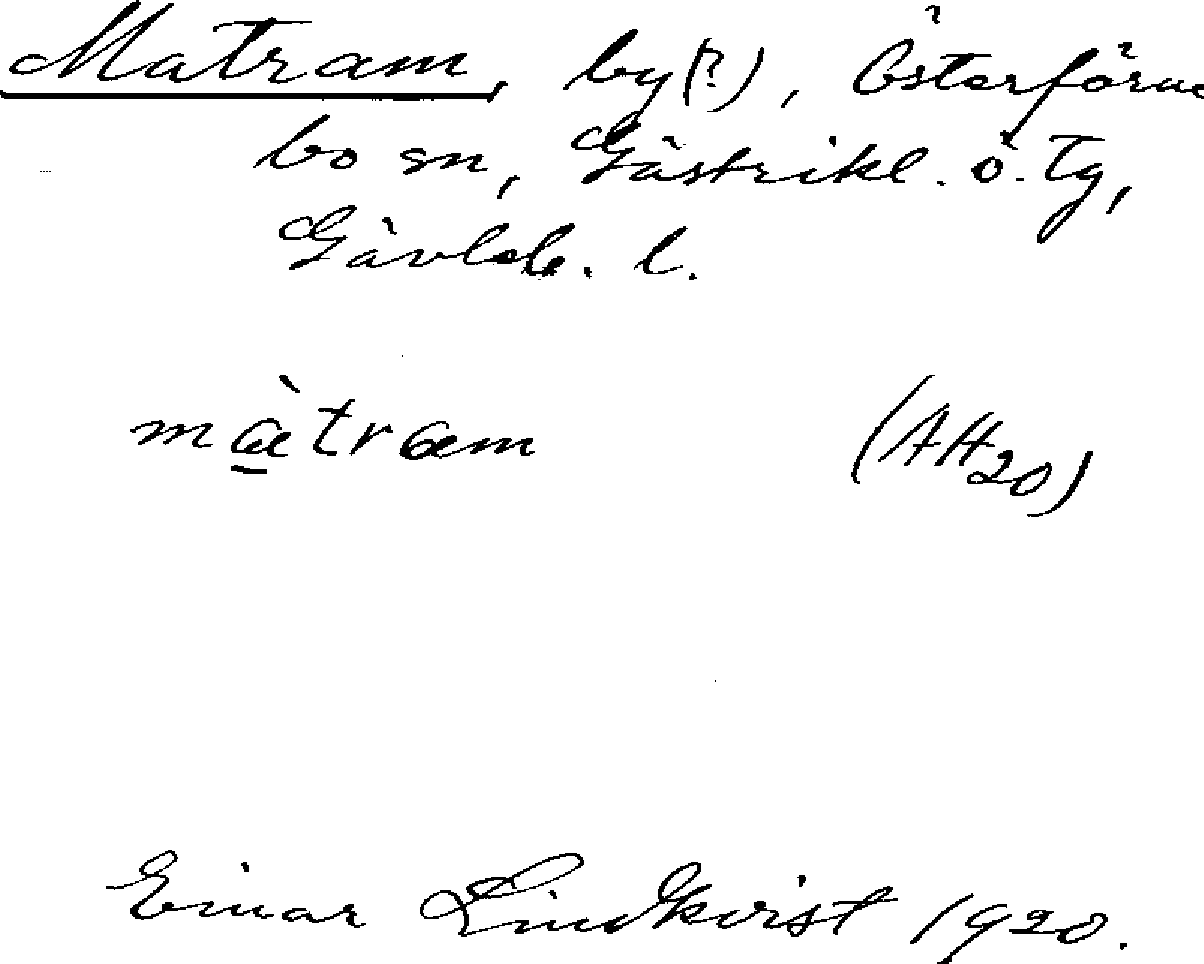 Matram, by(?), Österfärne
bo sn, Gästrikl. ö. tg,
Gävleb. l.
mætræm (AH20)
Einar Lindkvist 1920.